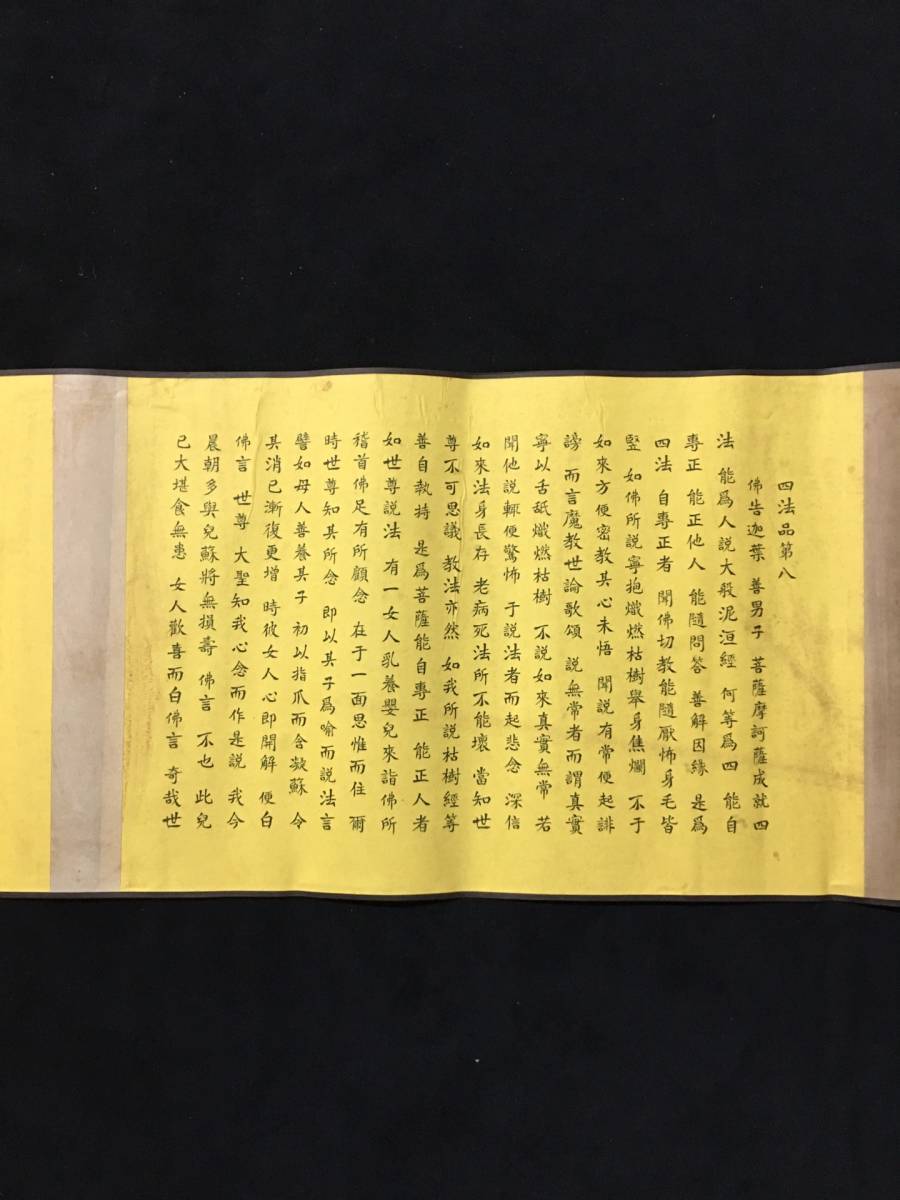 四法品第八
佛告迦葉 善男子 菩薩摩訶薩成就四
法 能爲人説大般泥洹經 何等爲四 能自
專正 能正他人 能隨問答 善解因緣 是爲
四法 自專正者 聞佛切教能隨厭怖身毛皆
竪 如佛所説寧抱熾燃枯樹舉身焦爛 不于
如來方便密教其心未悟 聞説有常便起誹
謗 而言魔教世論歌頌 説無常者而謂真實
寧以舌舐熾燃枯樹 不説如來真實無常 若
聞他説輒便驚怖 于説法者而起悲念 深信
如來法身長存 老病死法所不能壞 當知世
尊不可思議 教法亦然 如我所説枯樹經等
善自執持 是爲菩薩能自專正 能正人者
如世尊説法 有一女人乳養嬰兒來詣佛所
稽首佛足有所顧念 在于一面思惟而住 爾
時世尊知其所念 即以其子爲喻而説法言
譬如母人善養其子 初以指爪而含凝蘇 令
其消已漸復更增 時彼女人心即開解 便白
佛言 世尊 大聖知我心念而作是説 我今
晨朝多與兒蘇將無損壽 佛言 不也 此兒
已大堪食無患 女人歡喜而白佛言 奇哉世